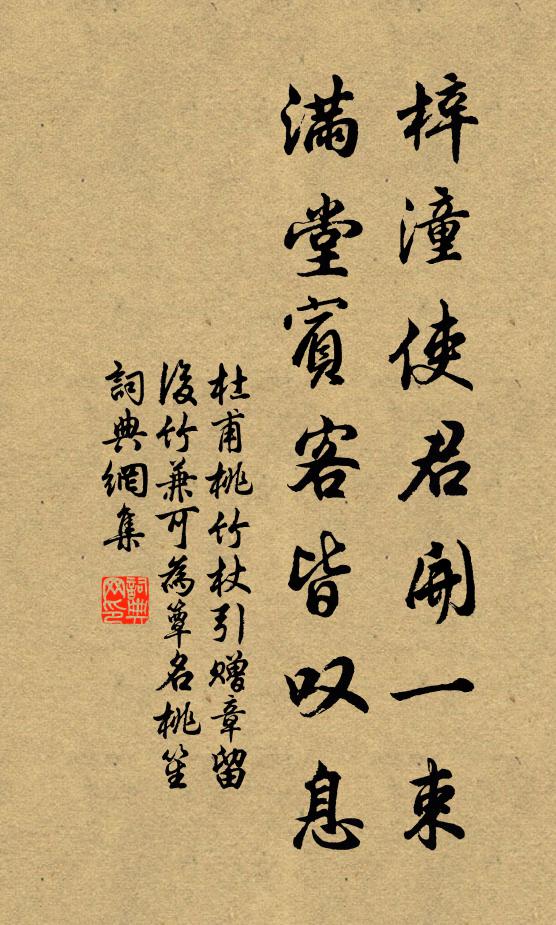 梓潼使君開一束
滿堂賓客皆叹息
杜甫桃竹杖引贈章留
後竹兼可為簟名桃笙
詞典網集
詞典网印